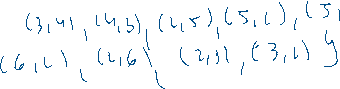 (3,4), (4,3), (2,5), (5,2), (5,
(6,2), (2,6), (2,3), (3,2) }